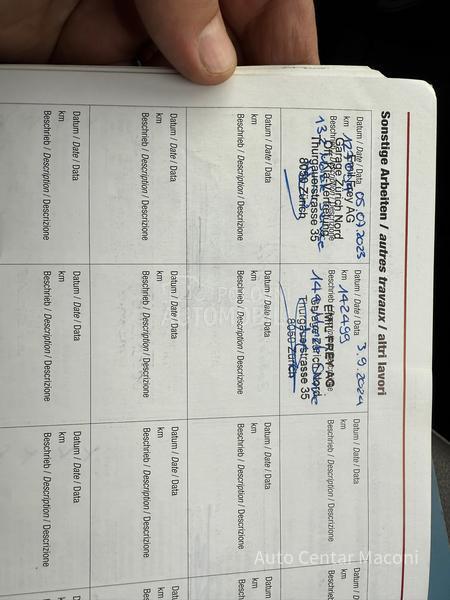 Sonstige Arbeiten / autres travaux / altri lavori
Datum / Date / Data 05.07.2023
km
Emil Frey AG
Garage Zürich Nord
Thurgauerstrasse 35
8050 Zürich
Datum / Date / Data 3.9.2024
km 142499
Beschrieb / Description / Descrizione
EMIL FREY AG
Thurgauerstrasse 35
8050 Zürich
Datum / Date / Data
km
Beschrieb / Description / Descrizione
Datum / Date / Data
km
Beschrieb / Description / Descrizione
Datum / Date / Data
km
Beschrieb / Description / Descrizione
Datum / Date / Data
km
Beschrieb / Description / Descrizione
Datum / Date / Data
km
Beschrieb / Description / Descrizione
Datum / Date / Data
km
Beschrieb / Description / Descrizione
Datum / Date / Data
km
Beschrieb / Description / Descrizione
Datum / Date / Data
km
Beschrieb / Description / Descrizione
Datum / Date / Data
km
Beschrieb / Description / Descrizione
Datum / Date / Data
km
Beschrieb / Description / Descrizione
Auto Centar Maconi